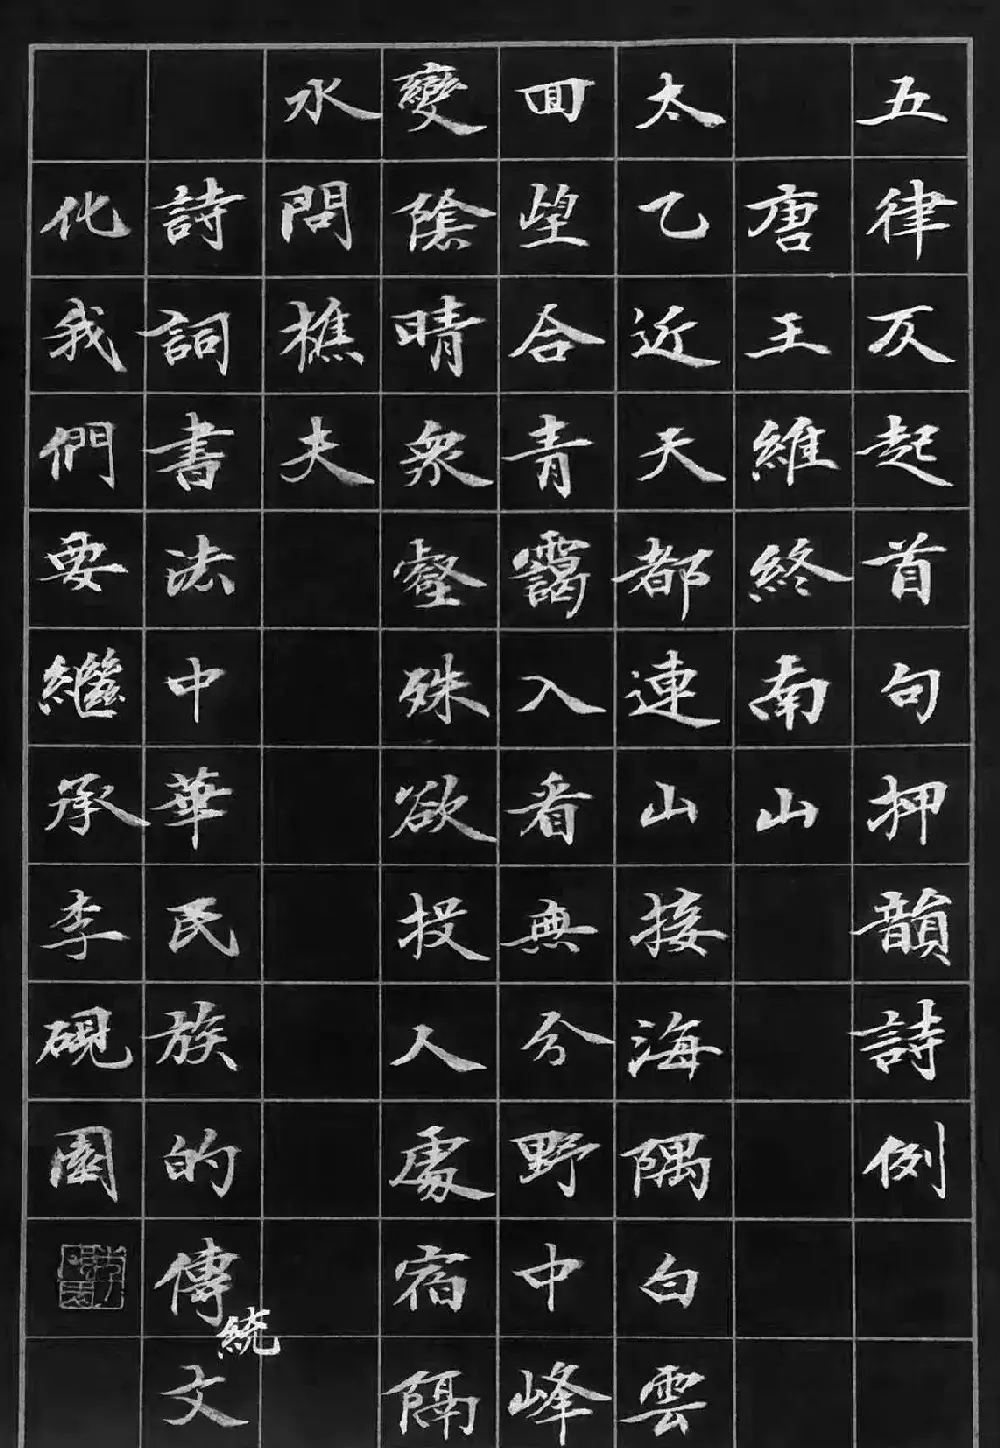 五律仄起首句押韻詩例
唐王維終南山
太乙近天都連山接海隅白雲
回望合青靄入看無分野中峰
變陰晴衆壑殊欲投人處宿隔
水問樵夫
詩詞書法中華民族的傳統文
化我們要繼承李硯園